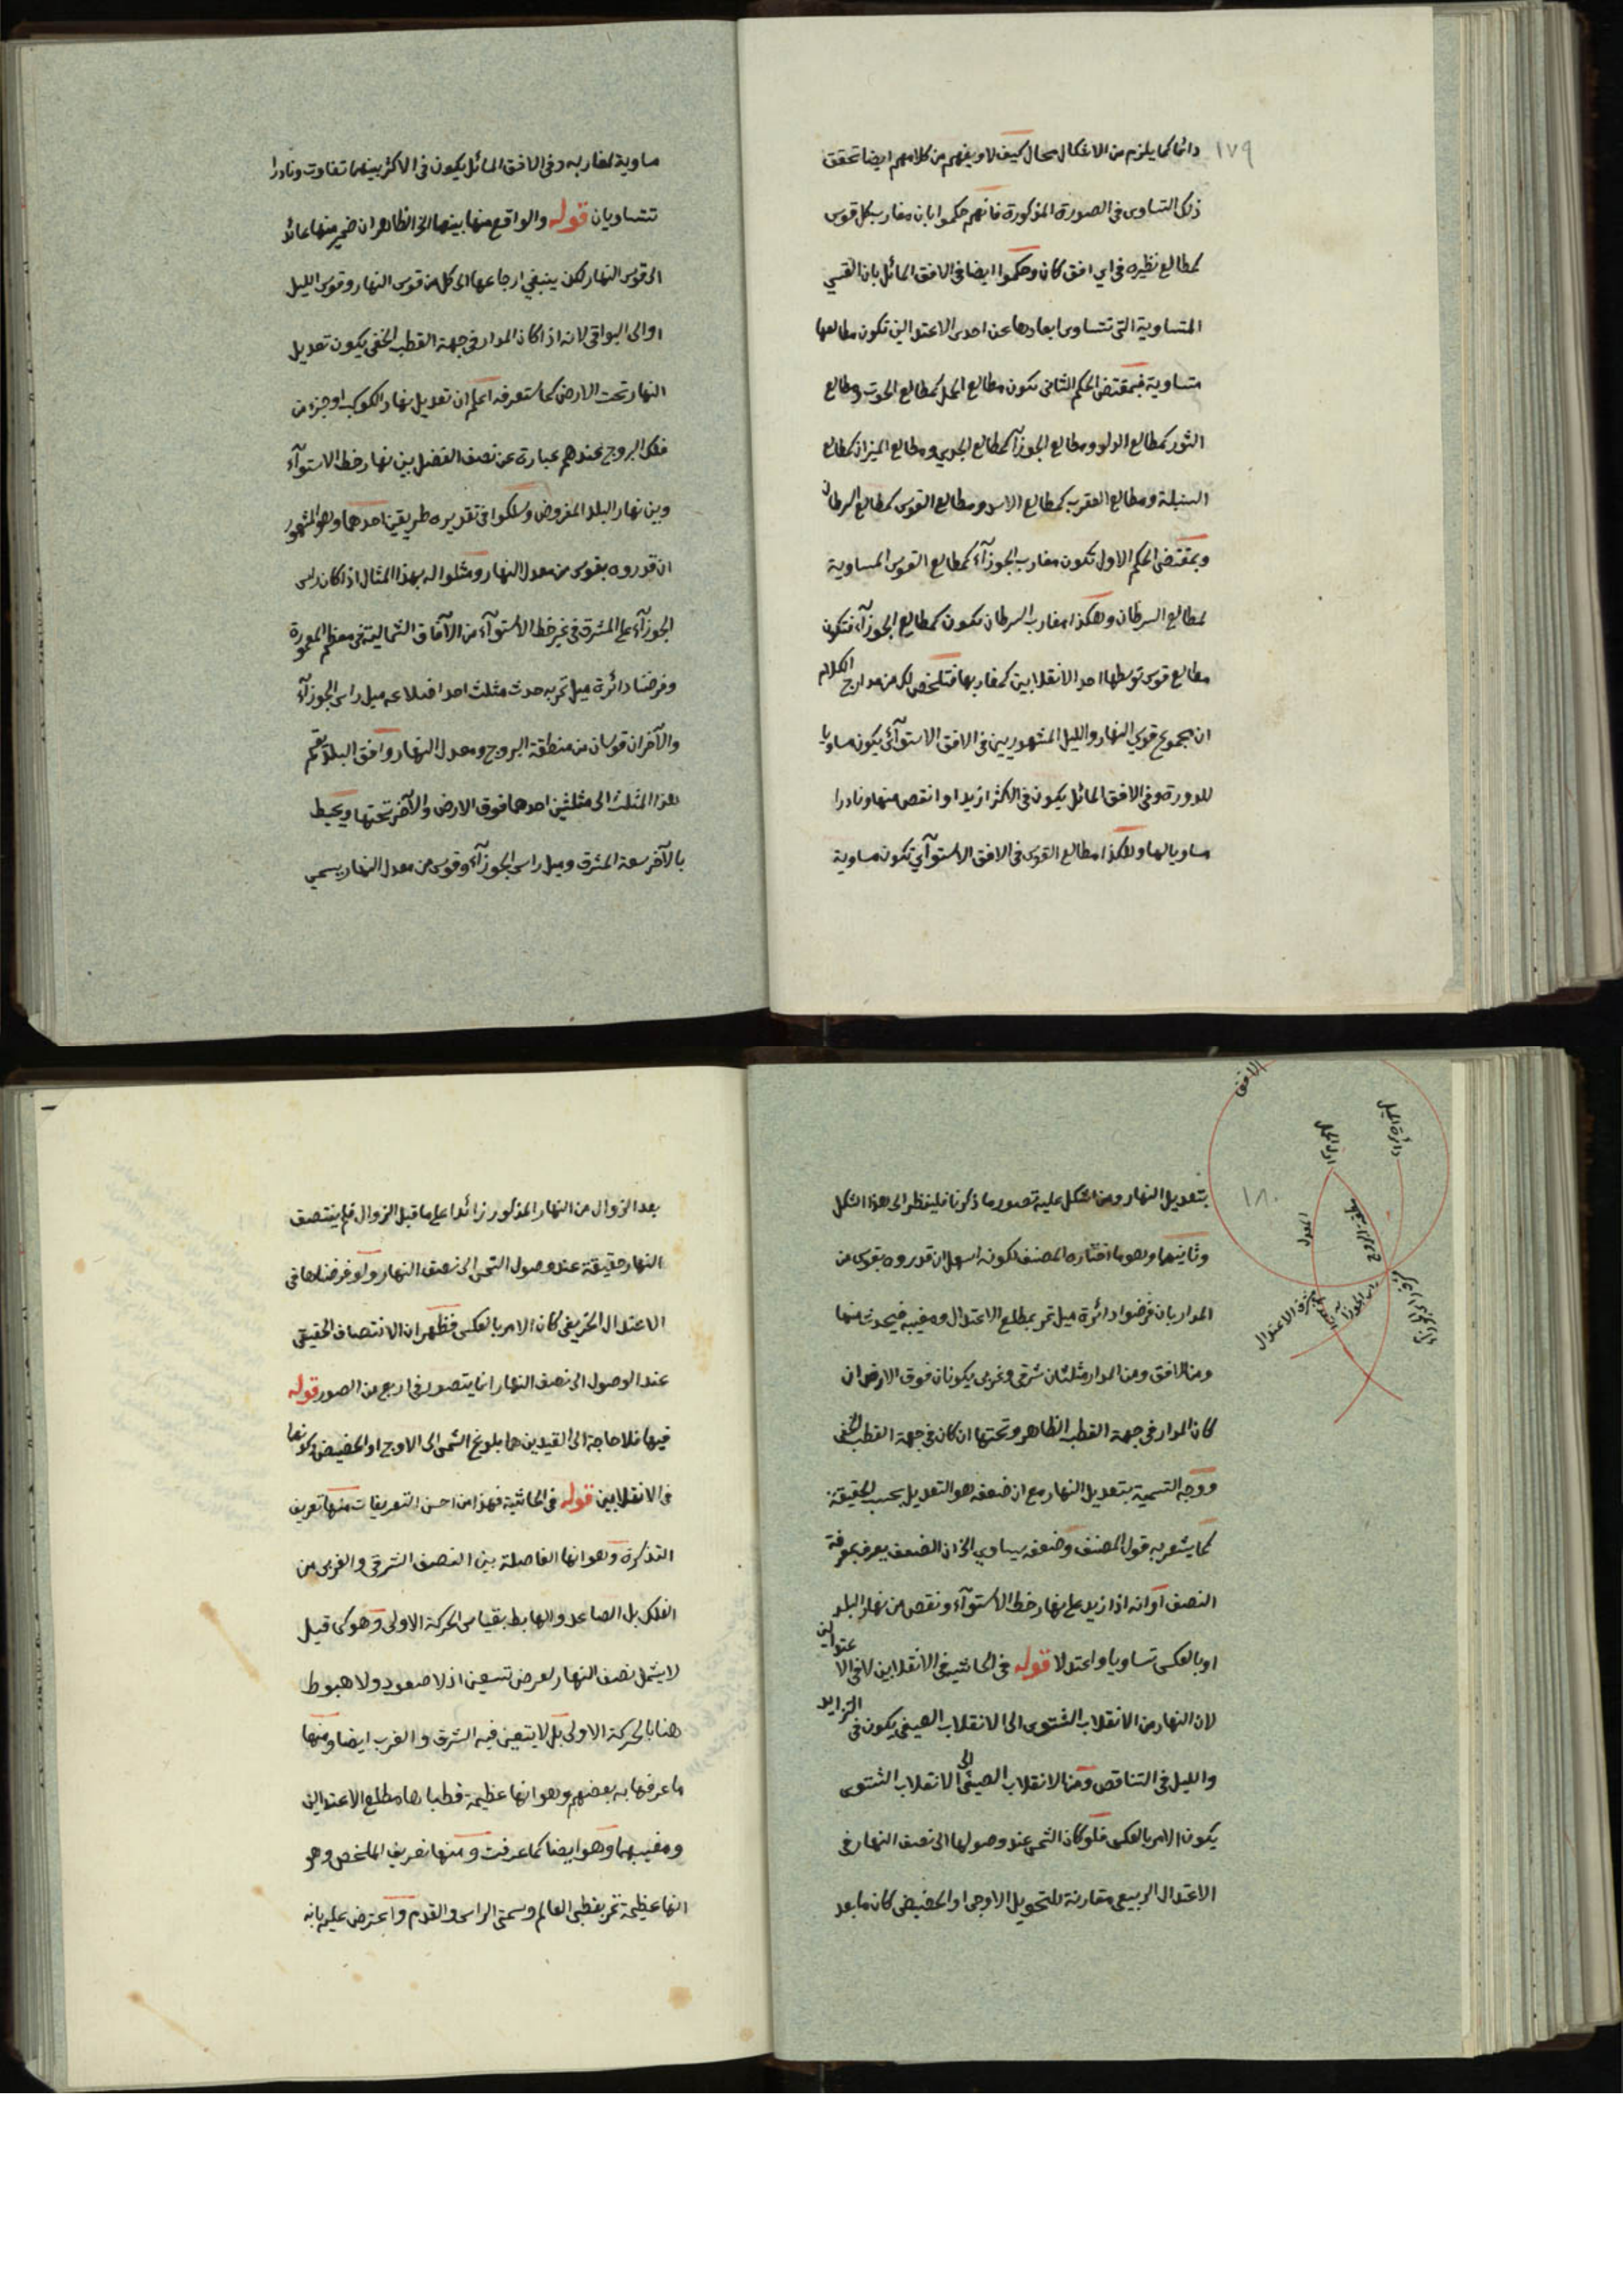 ١٧٩
دائما كما يلزم من الاشكال محال كيف لا ويفهم من كلامهم ايضا تحقق
ذلك التساوى فى الصورة المذكورة فانهم حكموا بان مغارب كل قوس
كمطالع نظيره فى اي افق كان وحكموا ايضا فى الافق المائل بان القسي
المتساوية التى تتساوى ابعادها عن احدى الاعتدالين تكون مطالعها
متساوية فبمقتضى الحكم الثانى تكون مطالع الحمل كمطالع الحوت ومطالع
الثور كمطالع الدلو ومطالع الجوزآ كمطالع الجدي ومطالع الميزان كمطالع
السنبلة ومطالع العقرب كمطالع الاسد ومطالع القوس كمطالع السرطان
وبمقتضى الحكم الاول تكون مغارب الجوزآء كمطالع القوس المساوية
لمطالع السرطان وهكذا مغارب السرطان تكون كمطالع الجوزآء فتكون
مطالع قوس توسطها احد الانقلابين كمغاربها فتلخص لك من مدارج الكلام
ان مجموع قوسي النهار والليل المشهوريين فى الافق الاستوآئى يكون مساويا
للدورة وفى الافق المائل يكون فى الاكثر ازيد او انقص منها ونادرا
مساويا لها وهكذا مطالع القوس فى الافق الاستوآئي تكون مساوية
مساوية لمغاربه وفى الافق المائل يكون فى الاكثر بينهما تفاوت ونادرا
تتساويان قوله والواقع منها بينهما الخ الظاهر ان ضمير منها عائد
الى قوس النهار لكن ينبغي ارجاعها الى كل من قوس النهار وقوس الليل
او الى البواقى لانه اذا كان المدار فى جهة القطب الخفى يكون تعديل
النهار تحت الارض كما ستعرفه اعلم ان تعديل نهار الكوكب او جزء من
فلك البروج عندهم عبارة عن نصف الفضل بين نهار خط الاستوآء
وبين نهار البلد المفروض وسلكوا فى تقديره طريقين احدهما وهو المشهور
ان قدروه بقوس من معدل النهار ومثلوا له بهذا المثال اذا كان راس
الجوزآء على المشرق فى غير خط الاستوآء من الآفاق الشمالية فى معظم المعمورة
وفرضنا دائرة ميل تمر به حدث مثلث احد اضلاعه ميل راس الجوزآء
والآخران قوسان من منطقة البروج ومعدل النهار وافق البلد يقسم
هذا المثلث الى مثلثين احدهما فوق الارض والآخر تحتها ويحيط
بالآخر سعة المشرق وميل راس الجوزآء وقوس من معدل النهار يسمى
١٨٠
بتعديل النهار ومن اشكل عليه تصور ما ذكرنا فلينظر الى هذا الشكل
وثانيهما وهو ما اختاره المصنف لكونه اسهل ان قدروه بقوس من
المدار بان فرضوا دائرة ميل تمر بمطلع الاعتدال ومغيبه فيحدث منها
ومن الافق ومن المدار مثلثان شرقى وغربى يكونان فوق الارض ان
كان المدار فى جهة القطب الظاهر وتحتها ان كان فى جهة القطب الخفى
ووجه التسمية بتعديل النهار مع ان ضعفه هو التعديل بحسب الحقيقة
كما يشعر به قول المصنف وضعفه يساوي الخ ان الضعف يعرف بمعرفة
النصف او انه اذا زيد على نهار خط الاستوآء ونقص من نهار البلد
او بالعكس تساويا واعتدلا قوله فى الحاشية فى الانقلابين لا فى الاعتدالين
لان النهار من الانقلاب الشتوى الى الانقلاب الصيفى يكون فى التزايد
والليل فى التناقص ومن الانقلاب الصيفى الى الانقلاب الشتوى
يكون الامر بالعكس فلو كان الشمس عند وصولها الى نصف النهار فى
الاعتدال الربيعى مقارنة للتحويل الاوجى او الحضيضى كان ما بعد
الافق
دائرة الميل
اول الحمل
المعدل
منطقة البروج
راس الجوزآ
مشرق الاعتدال
بعد الزوال من النهار المذكور زائدا على ما قبل الزوال فلم ينتصف
النهار حقيقة عند وصول الشمس الى نصف النهار ولو فرضناها فى
الاعتدال الخريفى كان الامر بالعكس فظهر ان الانتصاف الحقيقى
عند الوصول الى نصف النهار انما يتصور فى اربع من الصور قوله
فيها فلا حاجة الى القيدين هما بلوغ الشمس الى الاوج او الحضيض وكونها
فى الانقلابين قوله فى الحاشية فهذا من احسن التعريفات منها تعريف
التذكرة وهو انها الفاصلة بين النصف الشرقى والغربى من
الفلك بل الصاعد والهابط بقياس الحركة الاولى وهو كى قيل
لا يشمل نصف النهار لعرض تسعين اذ لا صعود ولا هبوط
هنا بالحركة الاولى بل لا يتعين فيه الشرق والغرب ايضا ومنها
ما عرفها به بعضهم وهو انها عظيمة قطباها مطلع الاعتدالين
ومغيبهما وهو ايضا كما عرفت ومنها تعريف الملخص وهو
انها عظيمة تمر بقطبى العالم وسمتى الراس والقدم واعترض عليه بانه